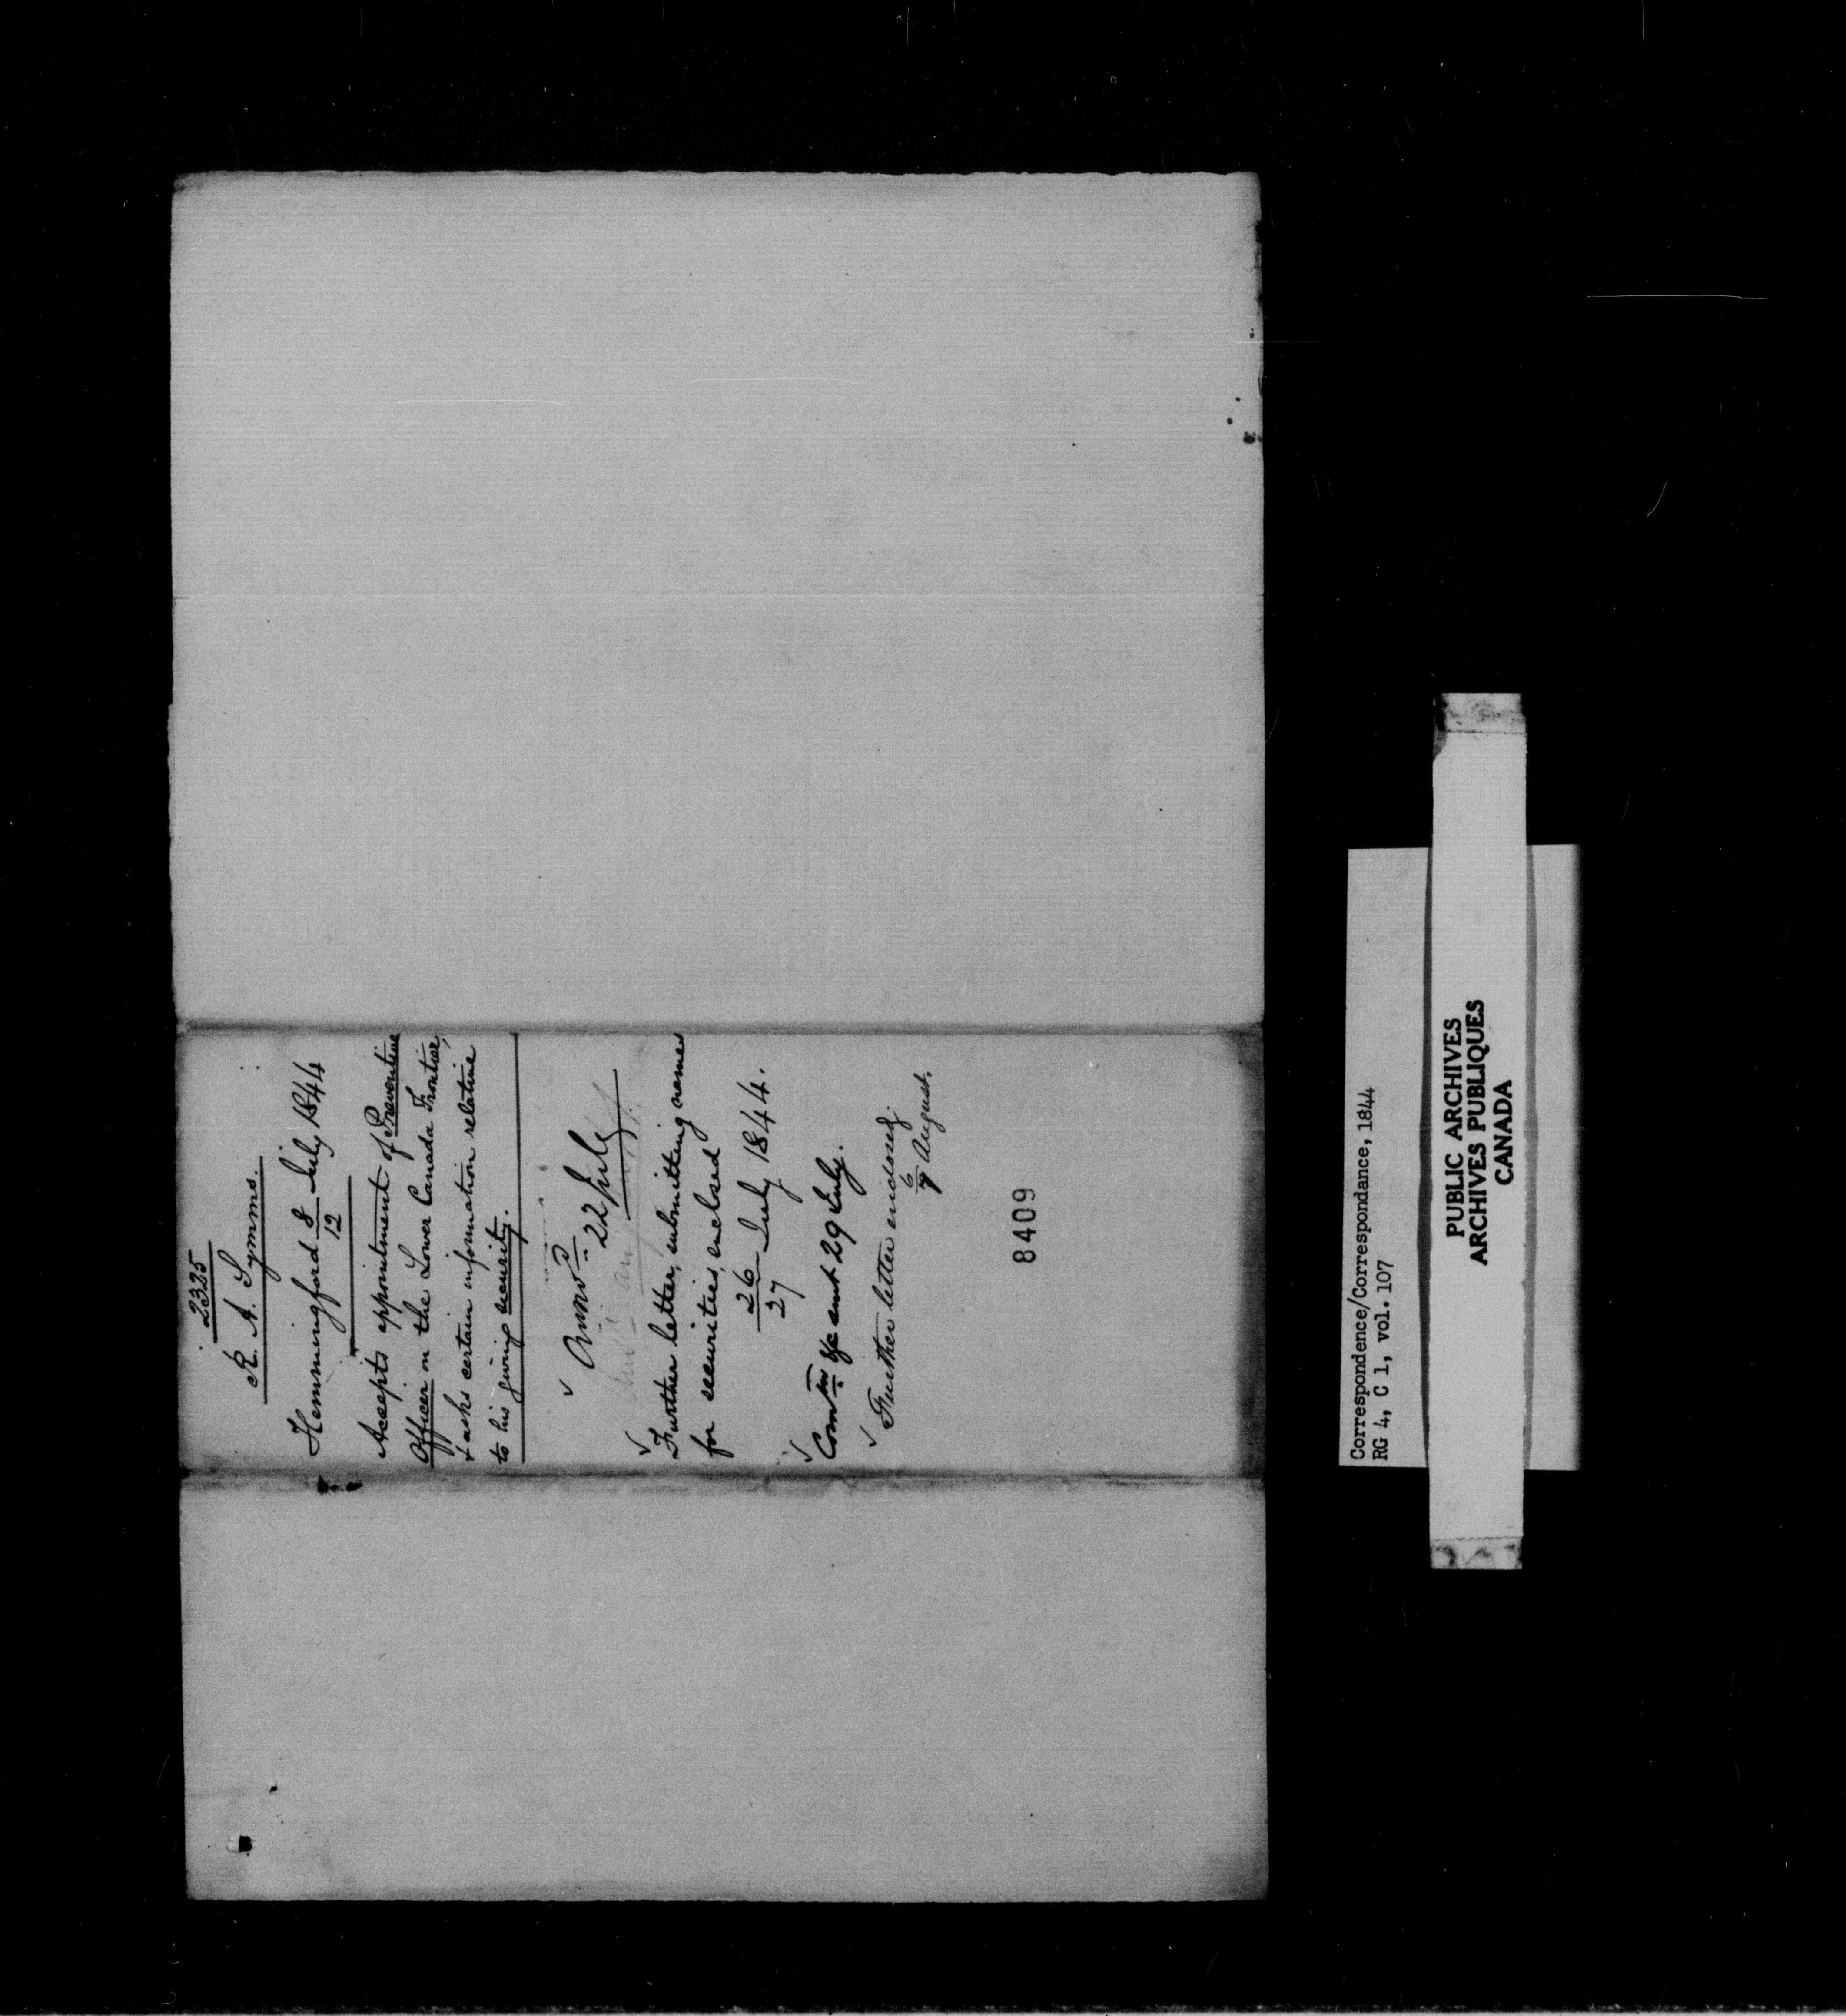 2325
R. A. Symms.
Hemmingford 8/12 July 1844
Accepts appointment of Preventive
Officer on the Lower Canada Frontier,
& asks certain information relative
to his giving security.
Answd 22 July
Further letter, submitting names
for securities, enclosed
26/27 July 1844.
Comn &c sent 29 July.
Further letter enclosed
6/7 August.
8409
Correspondence/Correspondance, 1844
RG 4, C 1, vol. 107
PUBLIC ARCHIVES
ARCHIVES PUBLIQUES
CANADA